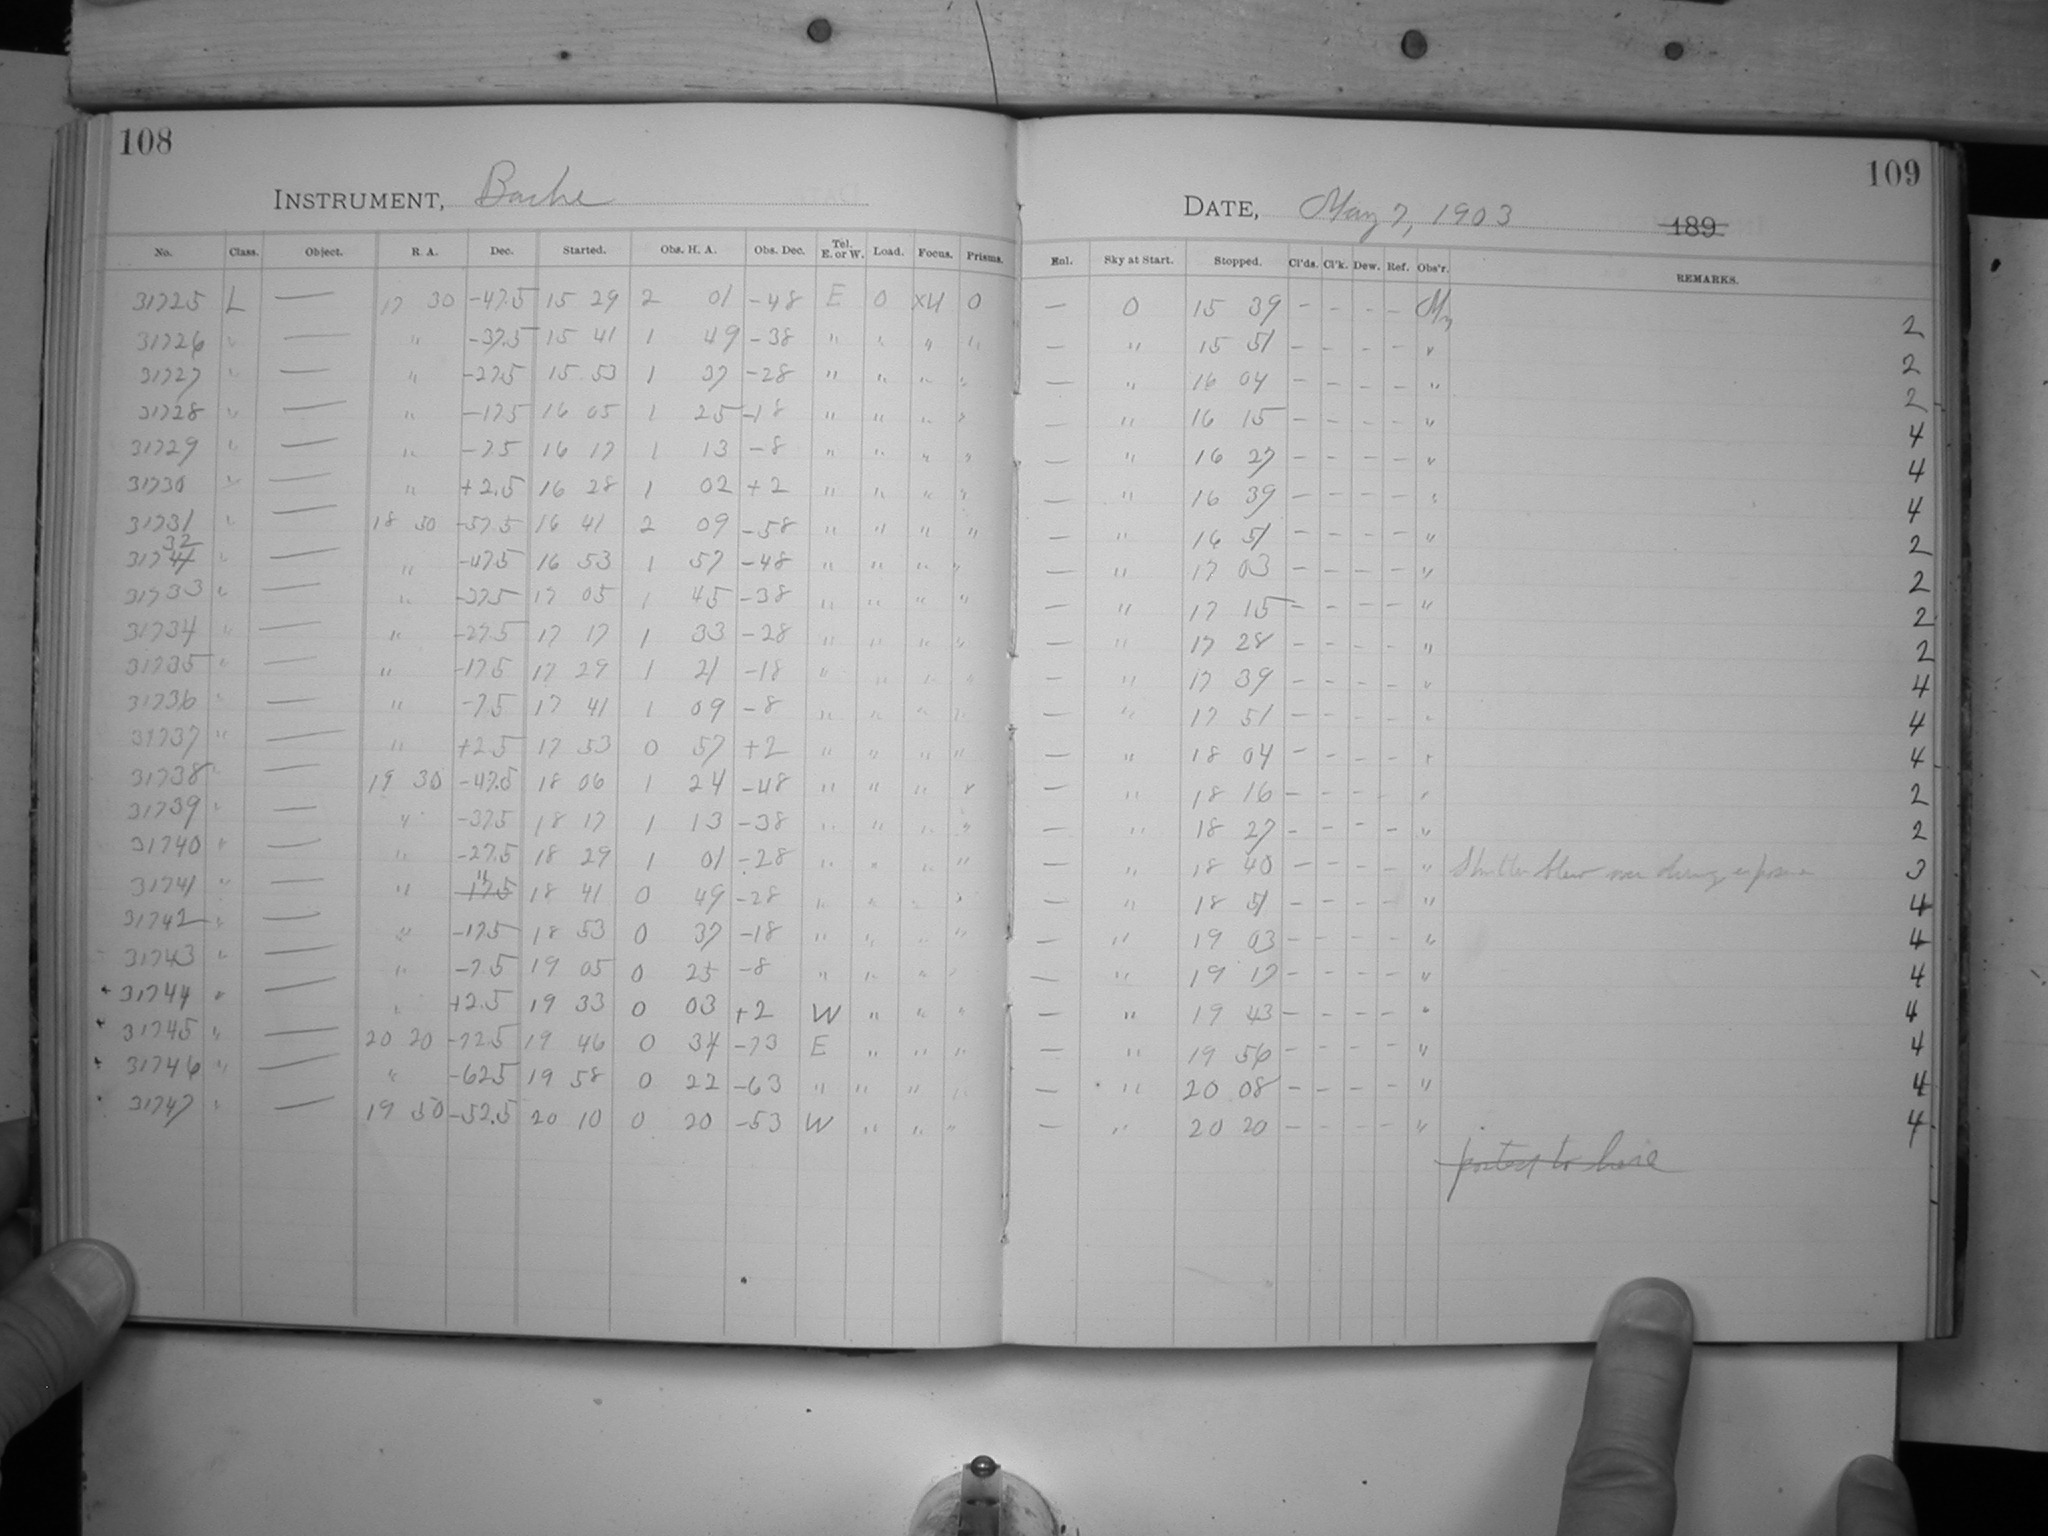 108
INSTRUMENT, Bache
No. Class. Object. R. A. Dec. Started. Obs. H. A. Obs. Dec. Tel. E. or W. Load. Focus. Prisms.
31725 L — 17 30 -47.5 15 29 2 01 -48 E 0 0
31726 " — " -37.5 15 41 1 49 -38 " " " "
31727 " — " -27.5 15 53 1 37 -28 " " " "
31728 " — " -17.5 16 05 1 25 -18 " " " "
31729 " — " -7.5 16 17 1 13 -8 " " " "
31730 " — " +2.5 16 28 1 02 +2 " " " "
31731 " — 18 30 -57.5 16 41 2 09 -58 " " " "
32
31741 " — " -47.5 16 53 1 57 -48 " " " "
31733 " — " -37.5 17 05 1 45 -38 " " " "
31734 " — " -27.5 17 17 1 33 -28 " " " "
31735 " — " -17.5 17 29 1 21 -18 " " " "
31736 " — " -7.5 17 41 1 09 -8 " " " "
31737 " — " +2.5 17 53 0 57 +2 " " " "
31738 " — 19 30 -47.5 18 06 1 24 -48 " " " "
31739 " — " -37.5 18 17 1 13 -38 " " " "
31740 " — " -27.5 18 29 1 01 -28 " " " "
31741 " — " " 17.5 18 41 0 49 -28 " " " "
31742 " — " -17.5 18 53 0 37 -18 " " " "
31743 " — " -7.5 19 05 0 25 -8 " " " "
31744 " — " +2.5 19 33 0 03 +2 W " " "
31745 " — 20 20 -72.5 19 46 0 34 -73 E " " "
31746 " — " -62.5 19 58 0 22 -63 " " " "
31747 " — 19 50 -52.5 20 10 0 20 -53 W " " "
109
DATE, May 7, 1903 189
Rol. Sky at Start. Stopped. Cl'ds. Cl'k. Dew. Ref. Obs'r. REMARKS.
— 0 15 39 - - - - My 2
— " 15 51 - - - - " 2
— " 16 04 - - - - " 2
— " 16 15 - - - - " 4
— " 16 27 - - - - " 4
— " 16 39 - - - - " 4
— " 16 51 - - - - " 2
— " 17 03 - - - - " 2
— " 17 15 - - - - " 2
— " 17 28 - - - - " 2
— " 17 39 - - - - " 4
— " 17 51 - - - - " 4
— " 18 04 - - - - " 4
— " 18 16 - - - - " 2
— " 18 27 - - - - " 2
— " 18 40 - - - - " Shutter blew over during exposure 3
— " 18 51 - - - - " 4
— " 19 03 - - - - " 4
— " 19 17 - - - - " 4
— " 19 43 - - - - " 4
— " 19 56 - - - - " 4
— " 20 08 - - - - " 4
— " 20 20 - - - - " 4
posted to here